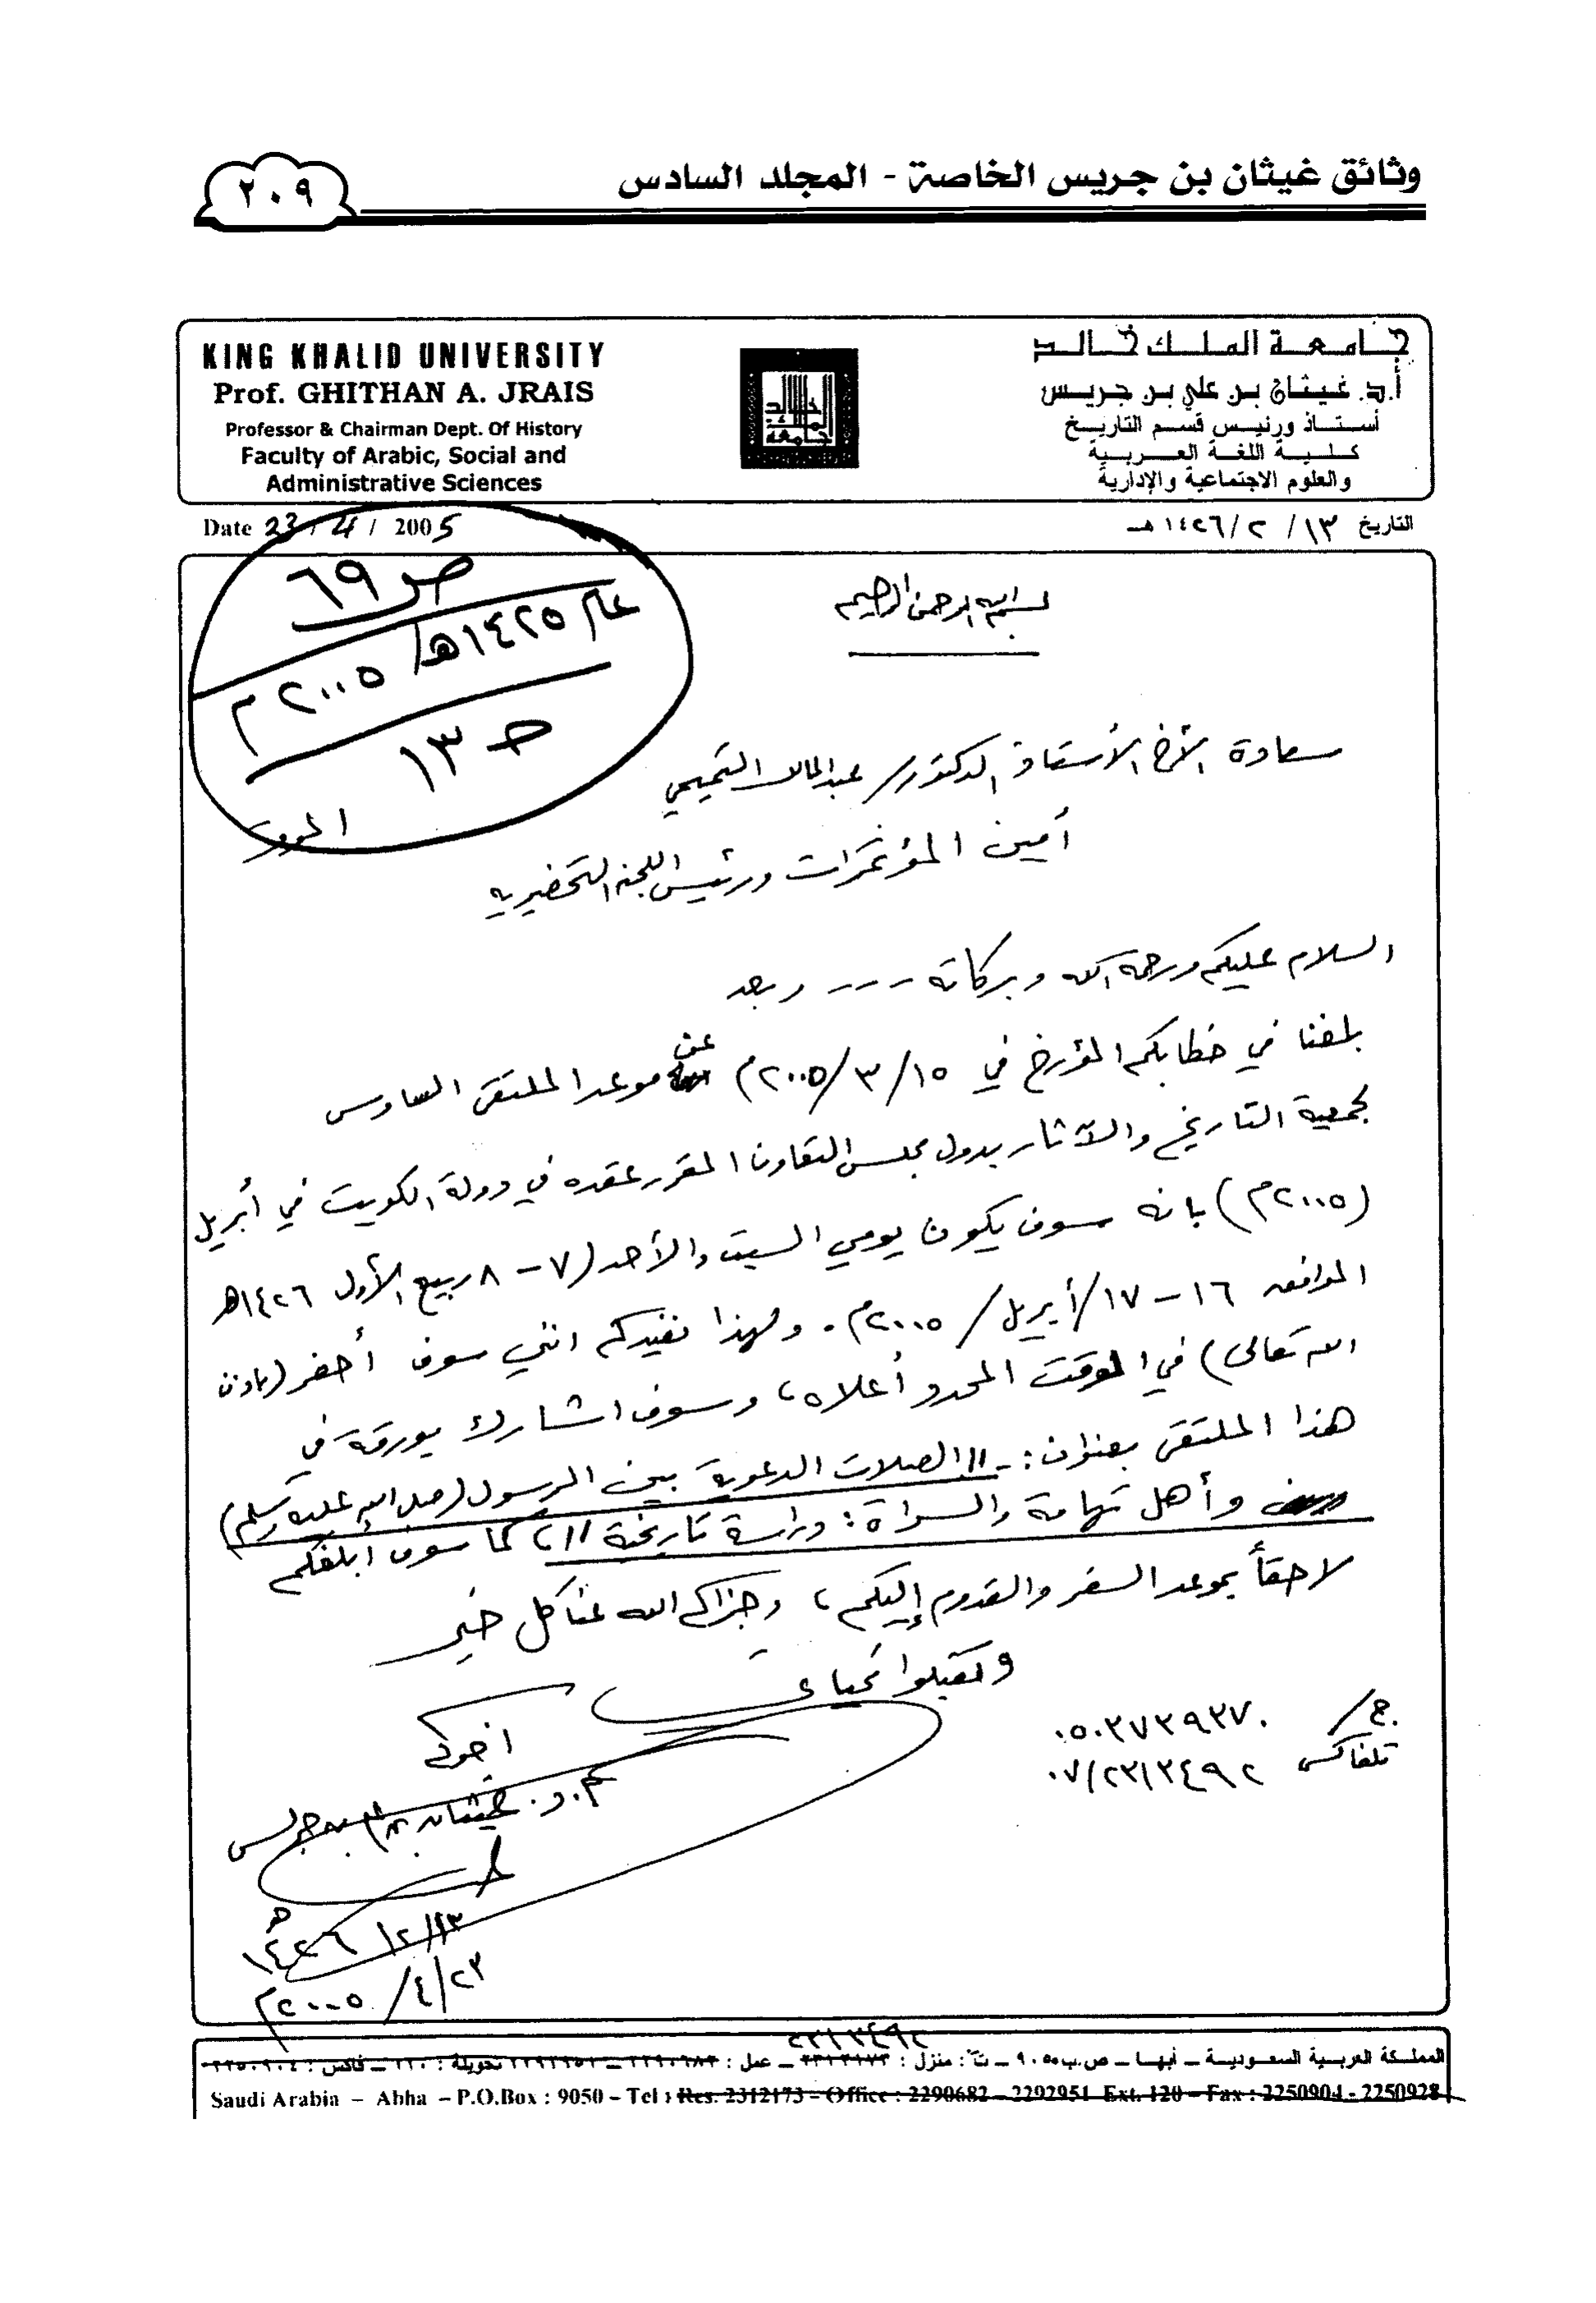 وثائق غيثان بن جريس الخاصة - المجلد السادس
٢٠٩
KING KHALID UNIVERSITY
Prof. GHITHAN A. JRAIS
Professor & Chairman Dept. Of History
Faculty of Arabic, Social and
Administrative Sciences
جامعة الملك خالد
أ.د. غيثان بن علي بن جريس
أستاذ ورئيس قسم التاريخ
كلية اللغة العربية
والعلوم الاجتماعية والإدارية
Date 23 / 4 / 2005
التاريخ ١٣ / ٢ / ١٤٢٦ هـ
ص ٦٩
عام ١٤٢٥هـ / ٢٠٠٥م
حـ ١٣
بسم الله الرحمن الرحيم
سعادة الأخ الأستاذ الدكتور/ عبدالمالك التميمي
أمين المؤتمرات ورئيس اللجنة التحضيرية
السلام عليكم ورحمة الله وبركاته ---- وبعد
بلغنا في خطابكم المؤرخ في ١٥/٣/٢٠٠٥م عن موعد الملتقى السادس
لجمعية التاريخ والآثار بدول مجلس التعاون المقرر عقده في دولة الكويت في أبريل
(٢٠٠٥م) بانه سوف يكون يومي السبت والأحد (٧-٨ ربيع الأول ١٤٢٦هـ
الموافق ١٦-١٧/أبريل/٢٠٠٥م. ولهذا نفيدكم انني سوف أحضر (بإذن
الله تعالى) في الوقت المحدد أعلاه، وسوف اشارك بورقة في
هذا الملتقى بعنوان:- "الصلات الدعوية بين الرسول (صلى الله عليه وسلم)
وأهل تهامة والسراة: دراسة تاريخية"، كما سوف ابلغكم
لاحقاً بموعد السفر والقدوم إليكم، وجزاكم الله عنا كل خير
وتقبلوا تحياتي
ج/ ٠٥٠٣٧٣٩٣٧٠
تلفاكس ٠٧/٢٣١٣٤٩٢
اخوكم
أ.د. غيثان بن علي بن جريس
١٣/٢/١٤٢٦هـ
٢٣/٤/٢٠٠٥م
٢٣١٣٤٩٢
المملكة العربية السعودية ـ أبهـا ـ ص.ب ٩٠٥٠ ـ ت: منزل : ٢٣١٢١٧٣ ـ عمل : ٢٢٩٠٦٨٢ ـ ٢٢٩٢٩٥١ تحويلة : ١٢٠ ـ فاكس : ٢٢٥٠٩٠٤
Saudi Arabia – Abha – P.O.Box : 9050 – Tel : Res. 2312173 – Office : 2290682 – 2292951 Ext. 120 – Fax : 2250904 - 2250928